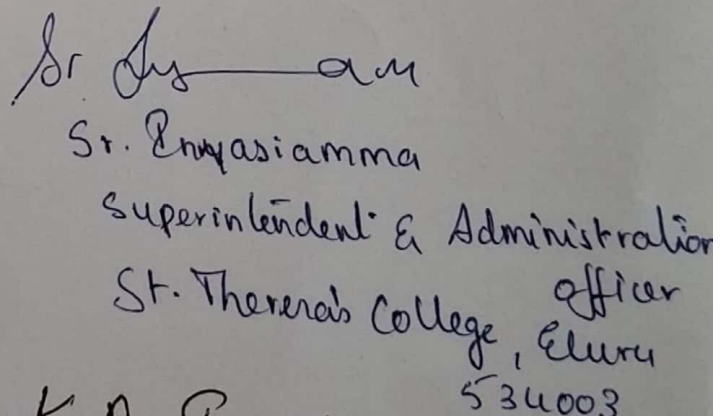 Sr
Sr. Innyasiamma
Superintendent & Administration
officer
St. Theresa's College, Eluru
534003